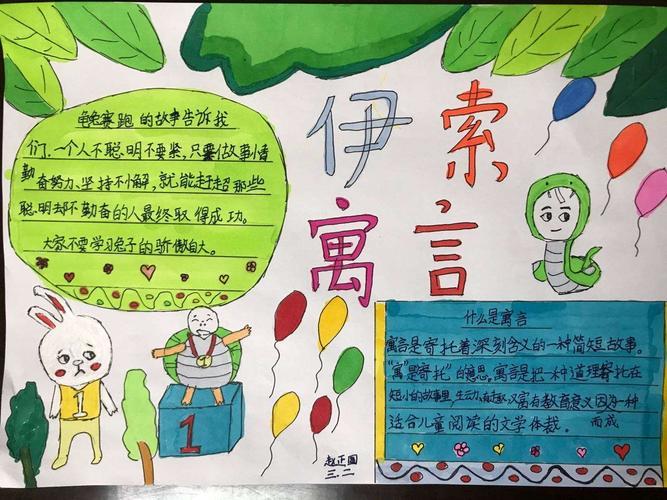 伊索
寓言
龟兔赛跑的故事告诉我
们、一个人不聪明不要紧,只要做事情
勤奋努力、坚持不懈,就能赶超那些
聪明却不勤奋的人最终取得成功。
大家不要学习兔子的骄傲自大。
什么是寓言
寓言是寄托着深刻含义的一种简短故事。
"寓"是"寄托"的意思,寓言是把一种道理寄托在
短小的故事里,生动有趣又富有教育意义因为一种
适合儿童阅读的文学体裁。而成
1
1
赵正圆
三.二